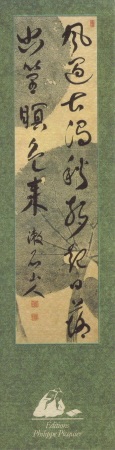 風過古澗秋聲起日落
幽篁瞑色来
漱石山人
Editions
Philippe Picquier